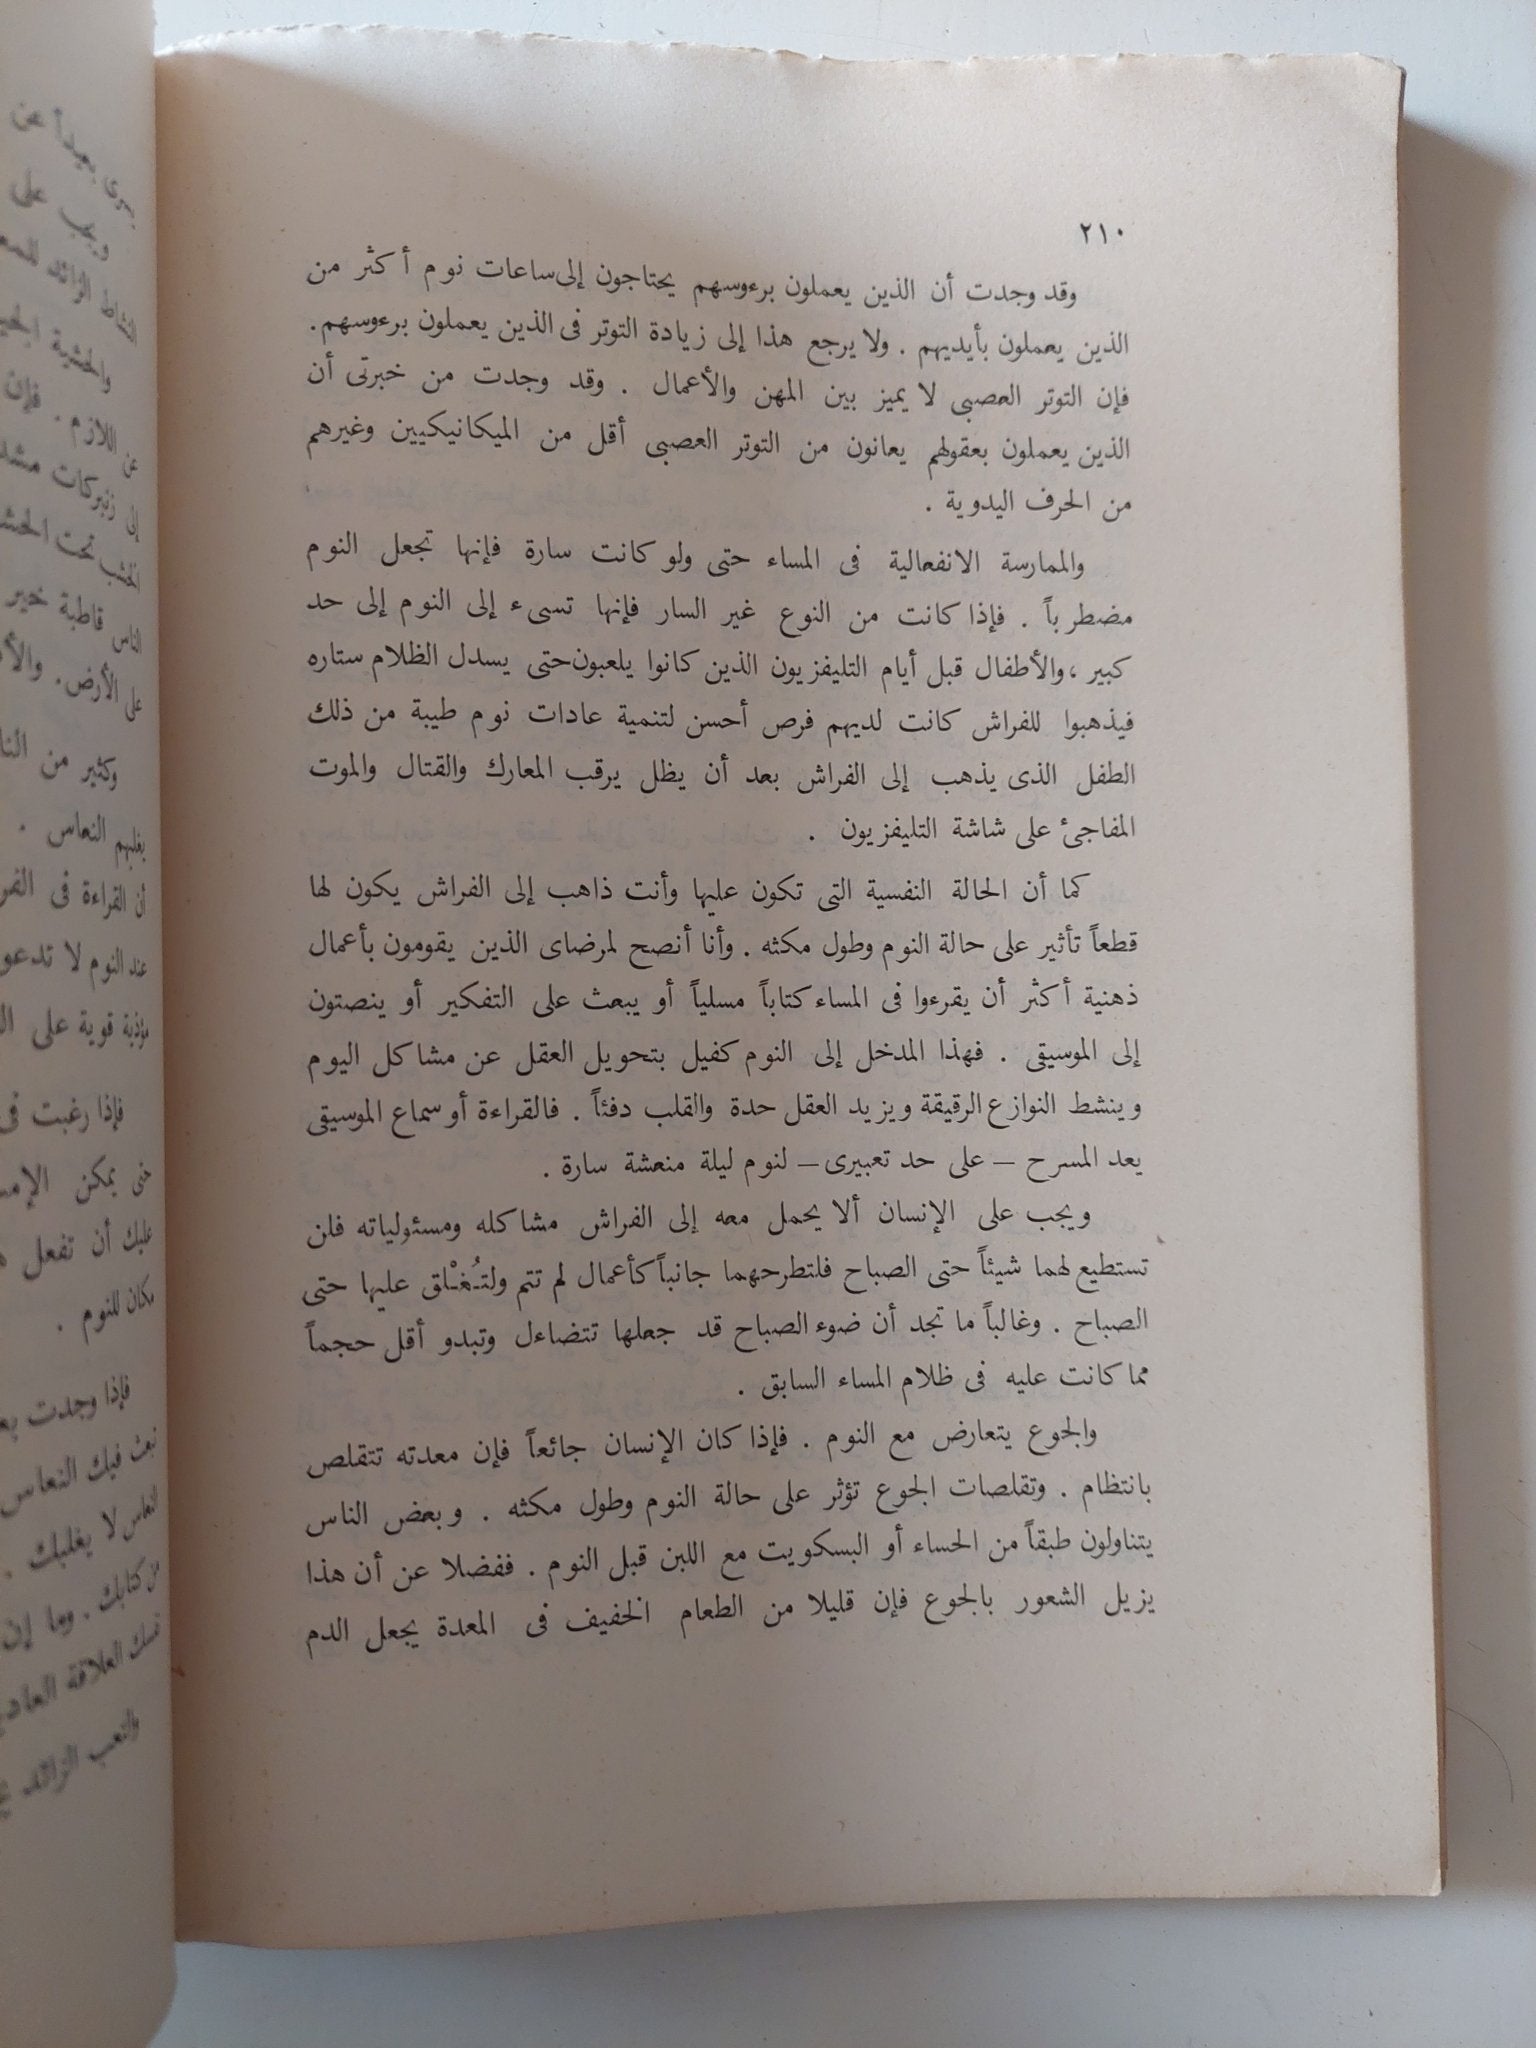 ٢١٠
وقد وجدت أن الذين يعملون برءوسهم يحتاجون إلى ساعات نوم أكثر من
الذين يعملون بأيديهم . ولا يرجع هذا إلى زيادة التوتر فى الذين يعملون برءوسهم.
فإن التوتر العصبى لا يميز بين المهن والأعمال . وقد وجدت من خبرتى أن
الذين يعملون بعقولهم يعانون من التوتر العصبى أقل من الميكانيكيين وغيرهم
من الحرف اليدوية .
والممارسة الانفعالية فى المساء حتى ولو كانت سارة فإنها تجعل النوم
مضطرباً . فإذا كانت من النوع غير السار فإنها تسىء إلى النوم إلى حد
كبير ، والأطفال قبل أيام التليفزيون الذين كانوا يلعبون حتى يسدل الظلام ستاره
فيذهبوا للفراش كانت لديهم فرص أحسن لتنمية عادات نوم طيبة من ذلك
الطفل الذى يذهب إلى الفراش بعد أن يظل يرقب المعارك والقتال والموت
المفاجئ على شاشة التليفزيون .
كما أن الحالة النفسية التى تكون عليها وأنت ذاهب إلى الفراش يكون لها
قطعاً تأثير على حالة النوم وطول مكثه . وأنا أنصح لمرضاى الذين يقومون بأعمال
ذهنية أكثر أن يقرءوا فى المساء كتاباً مسلياً أو يبعث على التفكير أو ينصتون
إلى الموسيقى . فهذا المدخل إلى النوم كفيل بتحويل العقل عن مشاكل اليوم
وينشط النوازع الرقيقة ويزيد العقل حدة والقلب دفئاً . فالقراءة أو سماع الموسيقى
يعد المسرح – على حد تعبيرى – لنوم ليلة منعشة سارة .
ويجب على الإنسان ألا يحمل معه إلى الفراش مشاكله ومسئولياته فلن
تستطيع لهما شيئاً حتى الصباح فلتطرحهما جانباً كأعمال لم تتم ولتُغْلق عليها حتى
الصباح . وغالباً ما تجد أن ضوء الصباح قد جعلها تتضاءل وتبدو أقل حجماً
مما كانت عليه فى ظلام المساء السابق .
والجوع يتعارض مع النوم . فإذا كان الإنسان جائعاً فإن معدته تتقلص
بانتظام . وتقلصات الجوع تؤثر على حالة النوم وطول مكثه . وبعض الناس
يتناولون طبقاً من الحساء أو البسكويت مع اللبن قبل النوم . ففضلا عن أن هذا
يزيل الشعور بالجوع فإن قليلا من الطعام الخفيف فى المعدة يجعل الدم
وكثير من
يغلبهم النعاس .
أن القراءة فى
عند النوم لا تدعو
مؤذية قوية على
فإذا رغبت فى
حتى يمكن
عليك أن تفعل
مكان للنوم .
فإذا وجدت
تبعث فيك النعاس
النعاس لا يغلبك .
من كتابك . وما إن
نفسك العلاقة
والتعب الزائد